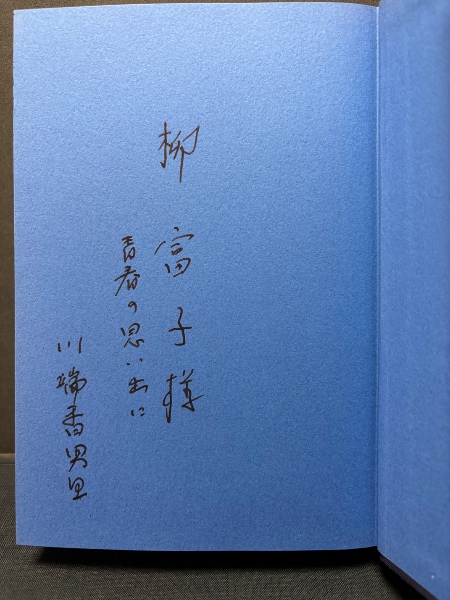 柳富子様
青春の思い出に
川端香男里